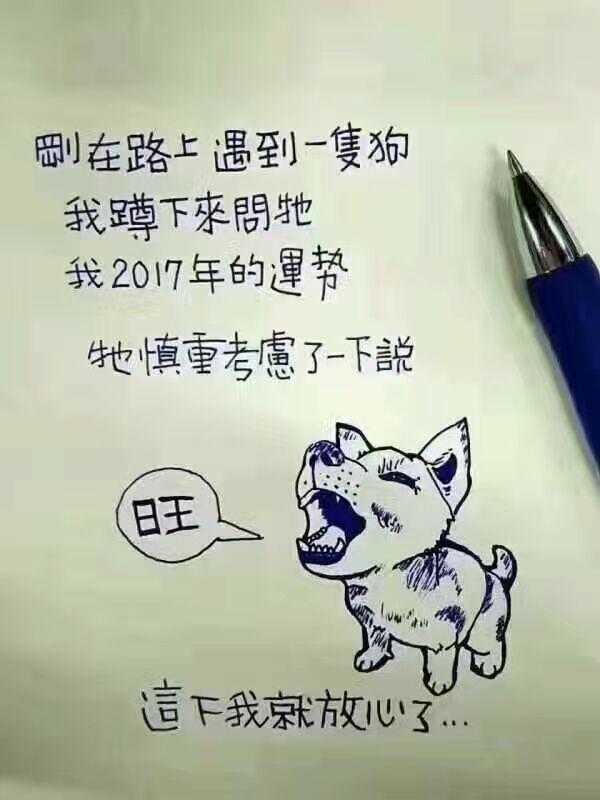 剛在路上遇到一隻狗
我蹲下來問牠
我2017年的運勢
牠慎重考慮了一下説
旺
這下我就放心了...